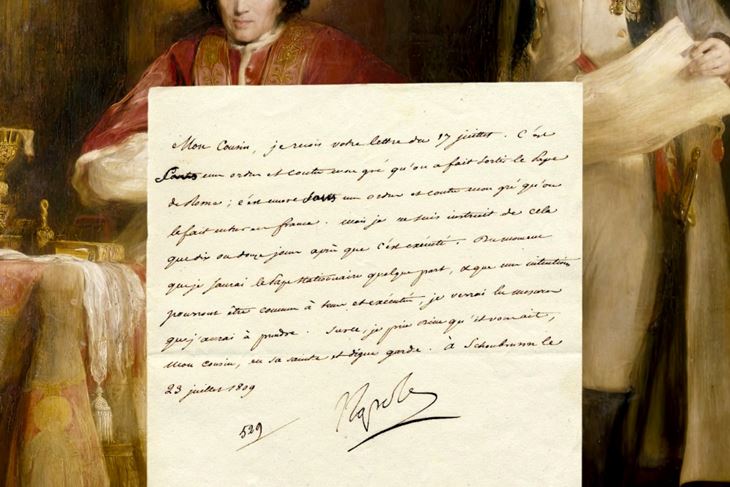 Mon Cousin, je reçois votre lettre du 17 juillet. C'est
sans mes ordres et contre mon gré qu'on a fait sortir le Pape
de Rome; c'est encore sans mes ordres et contre mon gré qu'on
le fait entrer en france. mais je ne suis instruit de cela
que dix ou douze jours après que c'est exécuté. Du moment
que je saurai le Pape stationnaire quelque part, & que mes intentions
pourront être connues à tems et exécutées, je verrai les mesures
que j'aurai à prendre. Sur ce, je prie Dieu qu'il vous ait,
Mon cousin, en sa sainte et digne garde. à Schoenbrunn le
23 juillet 1809
529 Napole